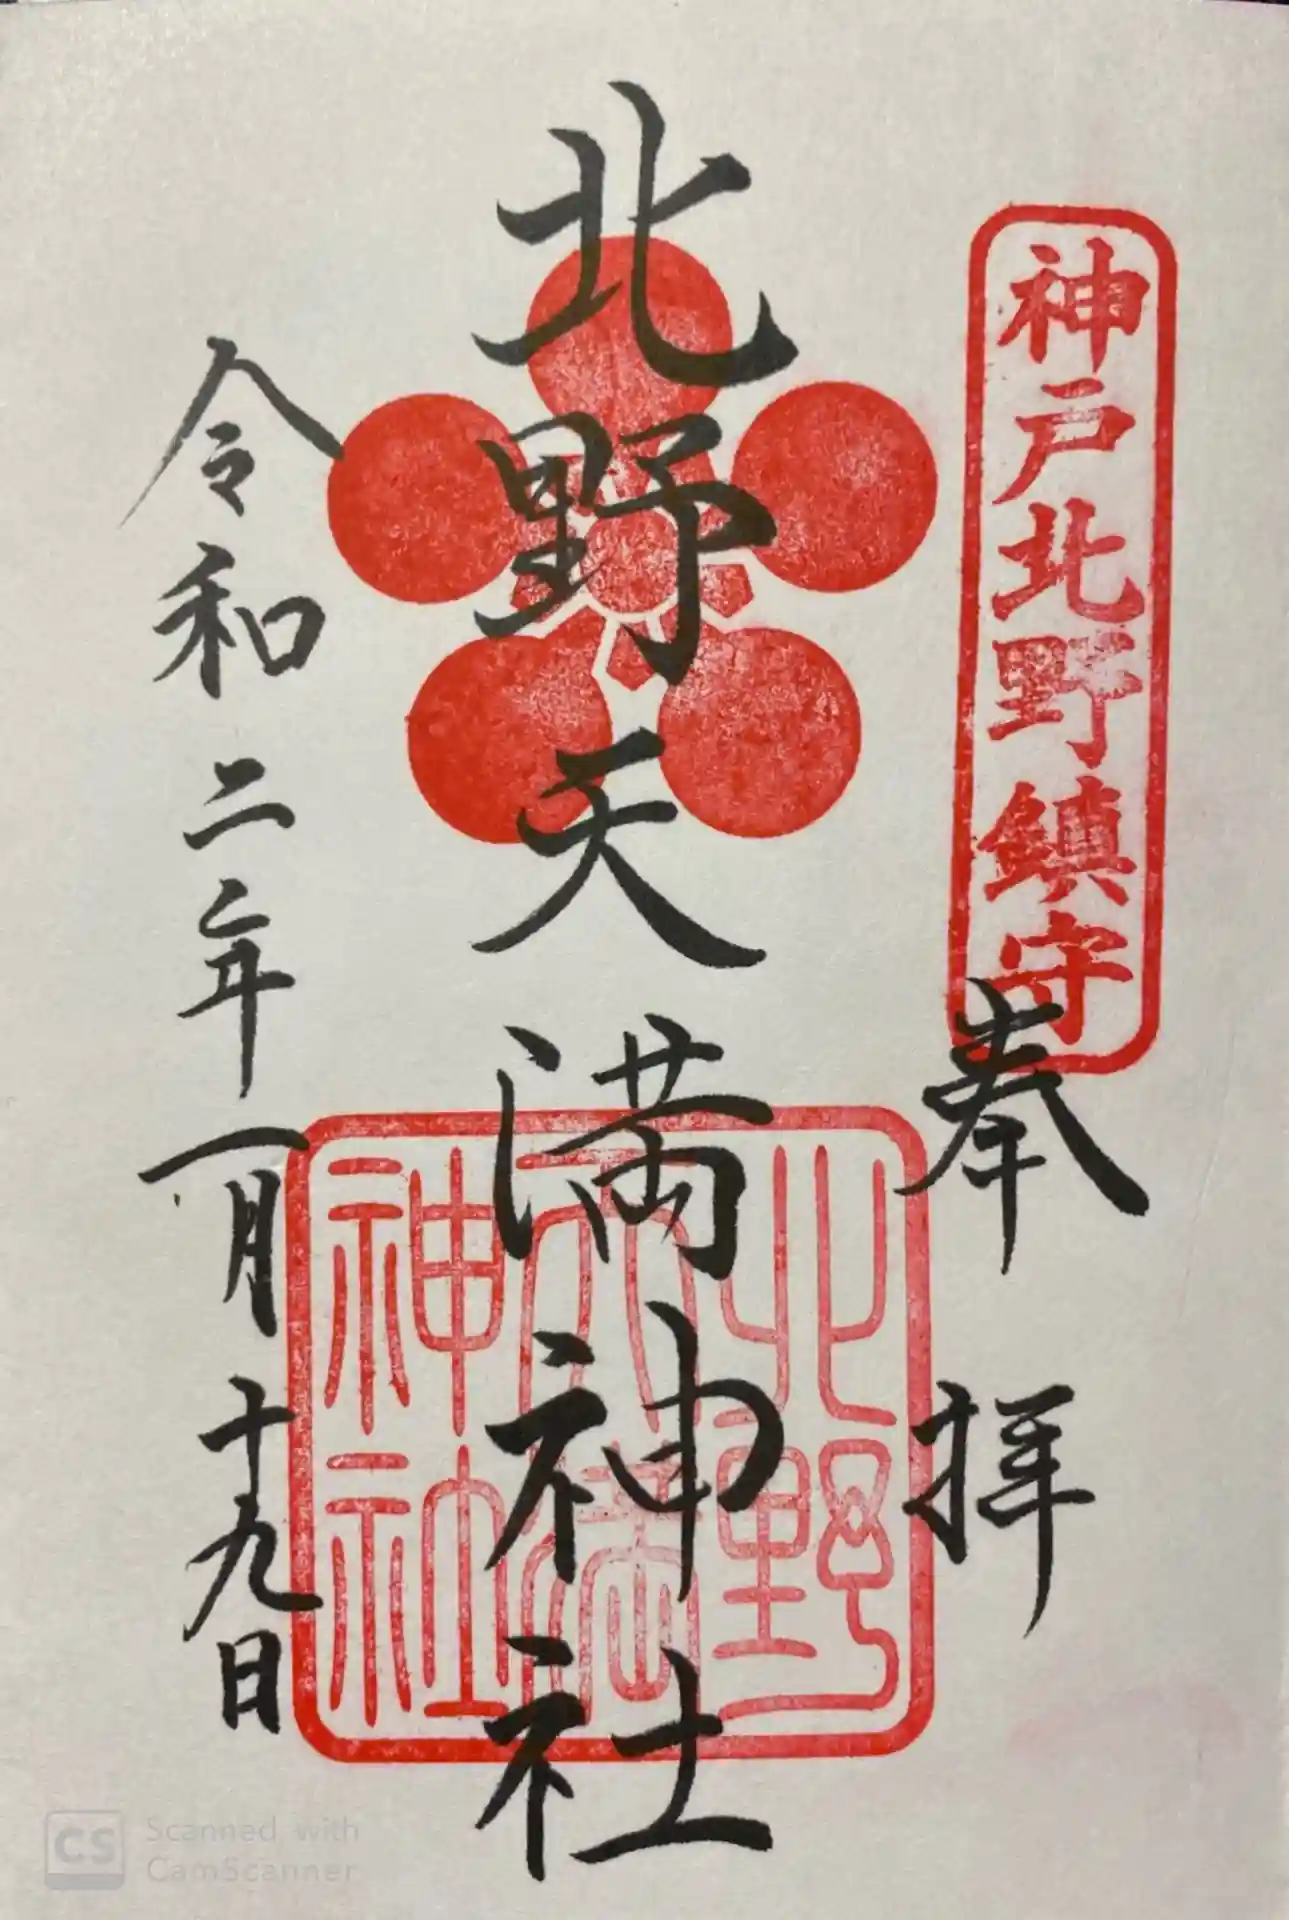 神戸北野鎮守
奉拝
北野天満神社
北野
天満
神社
令和二年一月十九日
CS
Scanned with
CamScanner